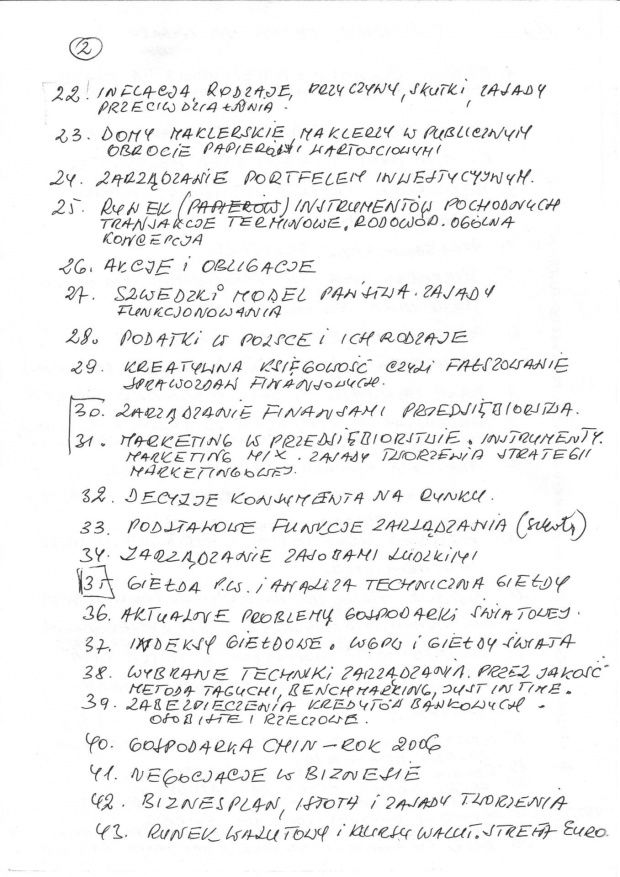 2
22. INFLACJA, RODZAJE, PRZYCZYNY, SKUTKI, ZASADY
PRZECIWDZIAŁANIA.
23. DOMY MAKLERSKIE, MAKLERZY W PUBLICZNYM
OBROCIE PAPIERAMI WARTOŚCIOWYMI
24. ZARZĄDZANIE PORTFELEM INWESTYCYJNYM.
25. RYNEK (PAPIERÓW) INSTRUMENTÓW POCHODNYCH
TRANSAKCJE TERMINOWE, RODOWÓD. OGÓLNA
KONCEPCJA
26. AKCJE I OBLIGACJE
27. SZWEDZKI MODEL PAŃSTWA. ZASADY
FUNKCJONOWANIA
28. PODATKI W POLSCE I ICH RODZAJE
29. KREATYWNA KSIĘGOWOŚĆ CZYLI FAŁSZOWANIE
SPRAWOZDAŃ FINANSOWYCH.
30. ZARZĄDZANIE FINANSAMI PRZEDSIĘBIORSTWA.
31. MARKETING W PRZEDSIĘBIORSTWIE. INSTRUMENTY.
MARKETING MIX. ZASADY TWORZENIA STRATEGII
MARKETINGOWEJ.
32. DECYZJE KONSUMENTA NA RYNKU.
33. PODSTAWOWE FUNKCJE ZARZĄDZANIA
34. ZARZĄDZANIE ZASOBAMI LUDZKIMI
35 GIEŁDA P.W. I ANALIZA TECHNICZNA GIEŁDY
36. AKTUALNE PROBLEMY GOSPODARKI ŚWIATOWEJ.
37. INDEKSY GIEŁDOWE. WGPW I GIEŁDY ŚWIATA
38. WYBRANE TECHNIKI ZARZĄDZANIA. PRZEZ JAKOŚĆ
METODA TAGUCHI, BENCHMARKING, JUST IN TIME.
39. ZABEZPIECZENIA KREDYTÓW BANKOWYCH.
OSOBISTE I RZECZOWE.
40. GOSPODARKA CHIN – ROK 2006
41. NEGOCJACJE W BIZNESIE
42. BIZNESPLAN, ISTOTA I ZASADY TWORZENIA
43. RYNEK WALUTOWY I KURSY WALUT. STREFA EURO.